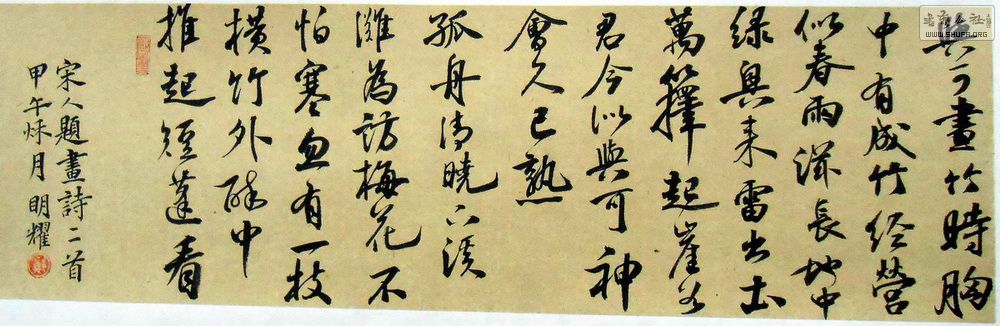 與可畫竹時胸
中有成竹经營
似春雨滋長地中
绿興来雷出土
萬籜起崖谷
君今似與可神
會久已熟
孤舟清曉下溪
灘為訪梅花不
怕寒忽有一枝
横竹外醉中
推起短蓬看
宋人題畫詩二首
甲午秌月 明耀
WWW.SHUFA.ORG